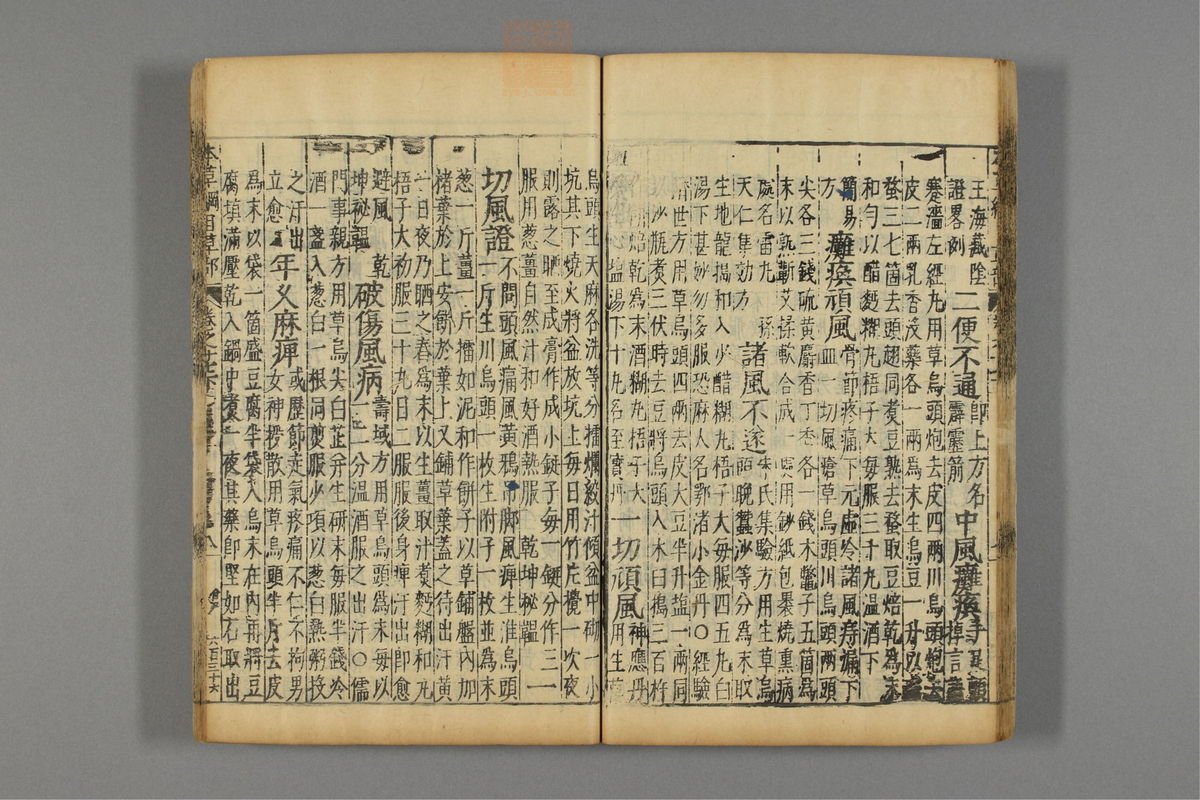 王海藏陰
證畧例 二便不通 即上方名霹靂箭 中風癱瘓 手足顫掉言語
蹇澀左經丸用草烏頭炮去皮四兩川烏頭炮去
皮二兩乳香沒藥各一兩爲末生烏豆一升以
蝥三七箇去頭翅同煮豆熟去蝥取豆焙乾爲末
和勻以醋麪糊丸梧子大每服三十丸温酒下
簡易方 癱瘓頑風 骨節疼痛下元虛冷諸風痔漏下
血一切風瘡草烏頭川烏頭兩頭
尖各三錢硫黄麝香丁香各一錢木鱉子五箇爲
末以熟蘄艾揉軟合成一處用鈔紙包裹燒熏病
處名雷丸 孫
天仁集効方 諸風不遂 朱氏集驗方用生草烏
頭晚蠶沙等分爲末取
生地龍搗和入少醋糊丸梧子大每服四五丸白
湯下甚妙勿多服恐麻人名鄂渚小金丹〇經驗
濟世方用草烏頭四兩去皮大豆半升塩一兩同
沙瓶煮三伏時去豆將烏頭入木臼搗三百杵
作餅焙乾爲末酒糊丸梧子大
塩湯下十丸名至寶丹 一切頑風 神應丹用生草
烏頭生天麻各洗等分擂爛絞汁傾盆中砌一小
坑其下燒火將盆放坑上每日用竹片攪一次夜
則露之晒至成膏作成小鋌子每一鋌分作三
服用葱薑自然汁和好酒熱服 乾坤秘韞 一
切風證 不問頭風痛風黄鴉吊脚風痹生淮烏頭
一斤生川烏頭一枚生附子一枚並爲末
葱一斤薑一斤擂如泥和作餅子以草鋪盤內加
楮葉於上安餅於葉上又鋪草葉蓋之待出汗黄
一日夜乃晒之舂爲末以生薑取汁煮麪糊和丸
梧子大初服三十丸日二服服後身痹汗出即愈
避風 乾
坤秘韞 破傷風病 壽域方用草烏頭爲末每以
一二分温酒服之出汗〇儒
門事親方用草烏尖白芷并生研末每服半錢冷
酒一盞入葱白一根同煎服少項以葱白熱粥投
之汗出
立愈 年久麻痹 或歷節走氣疼痛不仁不拘男
女神授散用草烏頭半斤去皮
爲末以袋一箇盛豆腐半袋入烏末在內再將豆
腐填滿壓乾入鍋中煮一夜其藥即堅如石取出
本草綱目草部 卷之十七下
六百三十六